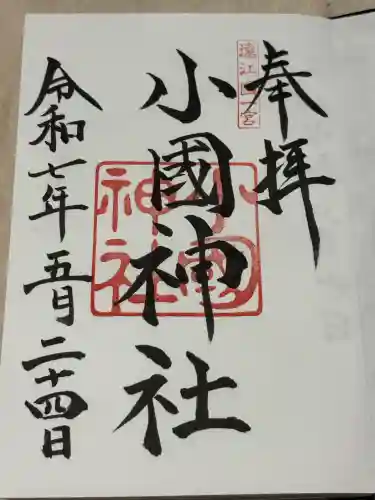 奉拝
遠江國一宮
小國神社
小國神社
令和七年五月二十四日